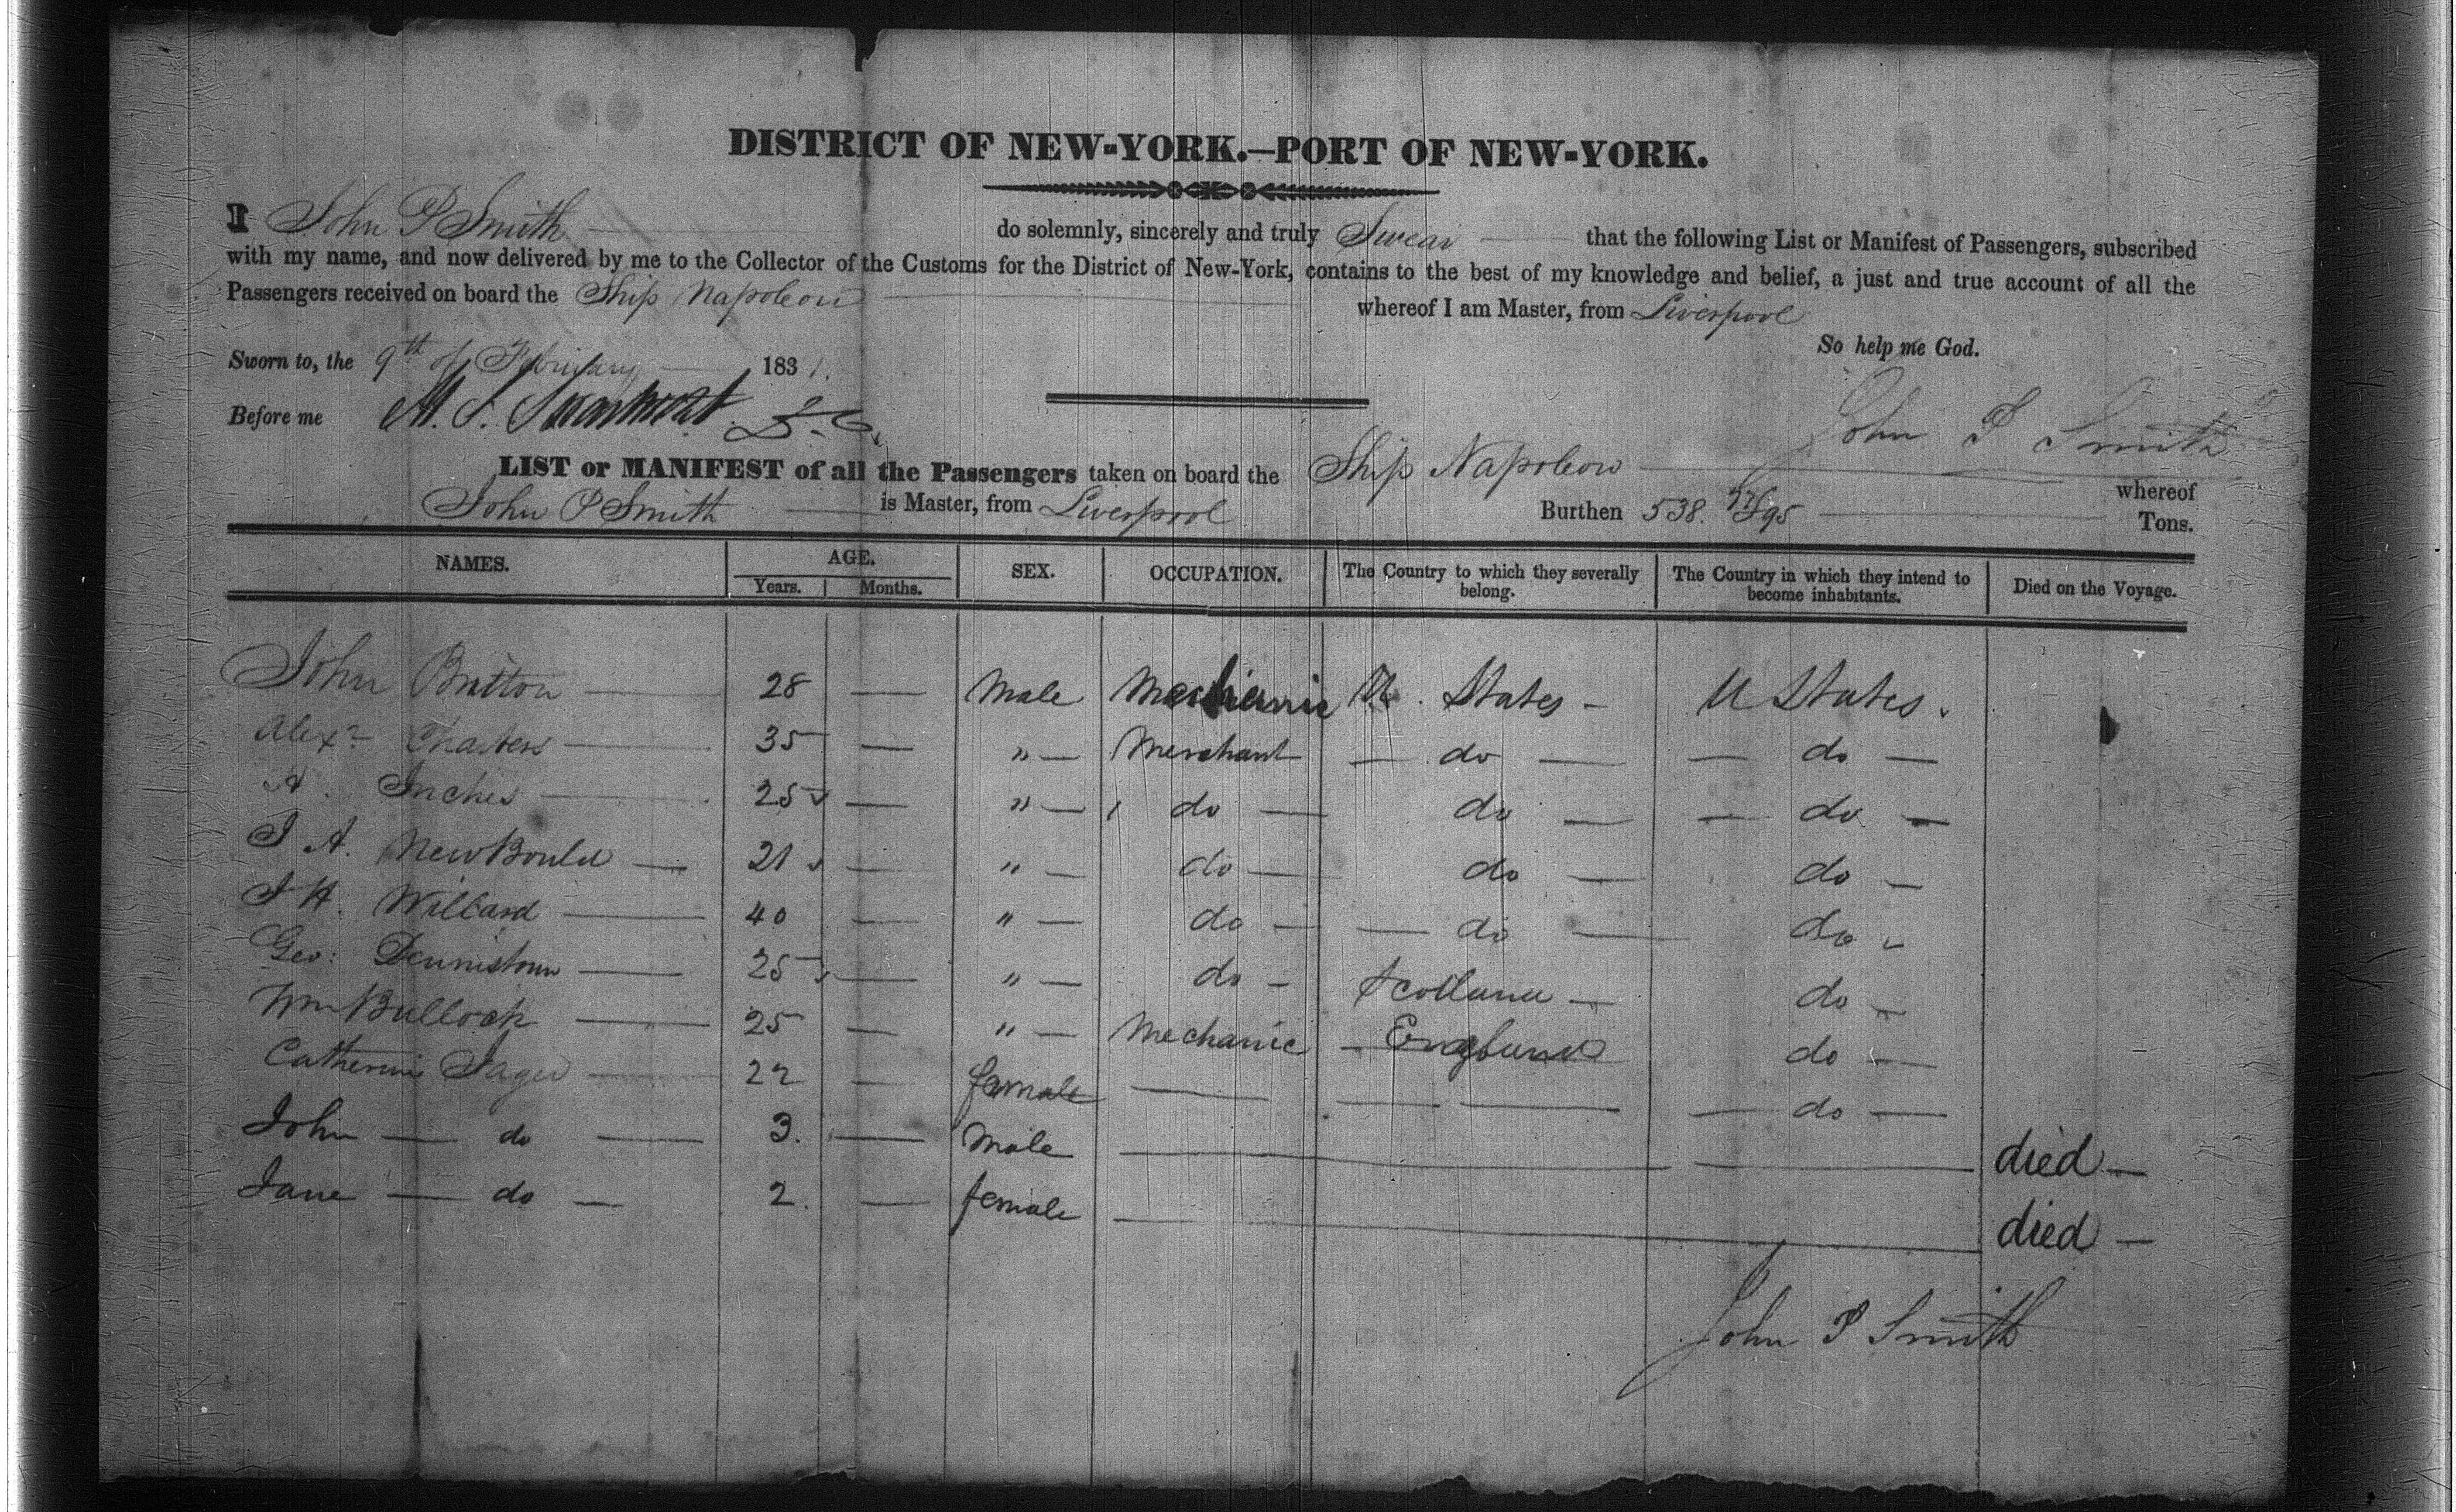 DISTRICT OF NEW-YORK.—PORT OF NEW-YORK.
I John P Smith — do solemnly, sincerely and truly Swear — that the following List or Manifest of Passengers, subscribed
with my name, and now delivered by me to the Collector of the Customs for the District of New-York, contains to the best of my knowledge and belief, a just and true account of all the
Passengers received on board the Ship Napoleon — whereof I am Master, from Liverpool
So help me God.
Sworn to, the 9th of February — 1831.
Before me
John P Smith
LIST or MANIFEST of all the Passengers taken on board the Ship Napoleon — whereof
John P Smith — is Master, from Liverpool Burthen 538. /95 — Tons.
NAMES. AGE. SEX. OCCUPATION. The Country to which they severally belong. The Country in which they intend to become inhabitants. Died on the Voyage.
Years. Months.
John Britton — 28 — Male Mechanic U. States - U States.
Alexr Charters — 35 — " — Merchant — do — — do —
A. Inches — 25 — " — do — do — — do —
J A. NewBould — 21 — " — do — do — do —
J H. Willard — 40 — " — do — — do — do -
Geo: Dennistoun — 25 — " — do - Scotland — do —
Wm Bullock — 25 — " — Mechanic - England do —
Catherine Sager — 22 — female — — — — do —
John — do — 3. — Male — — died —
Jane — do — 2. — female — died —
John P Smith